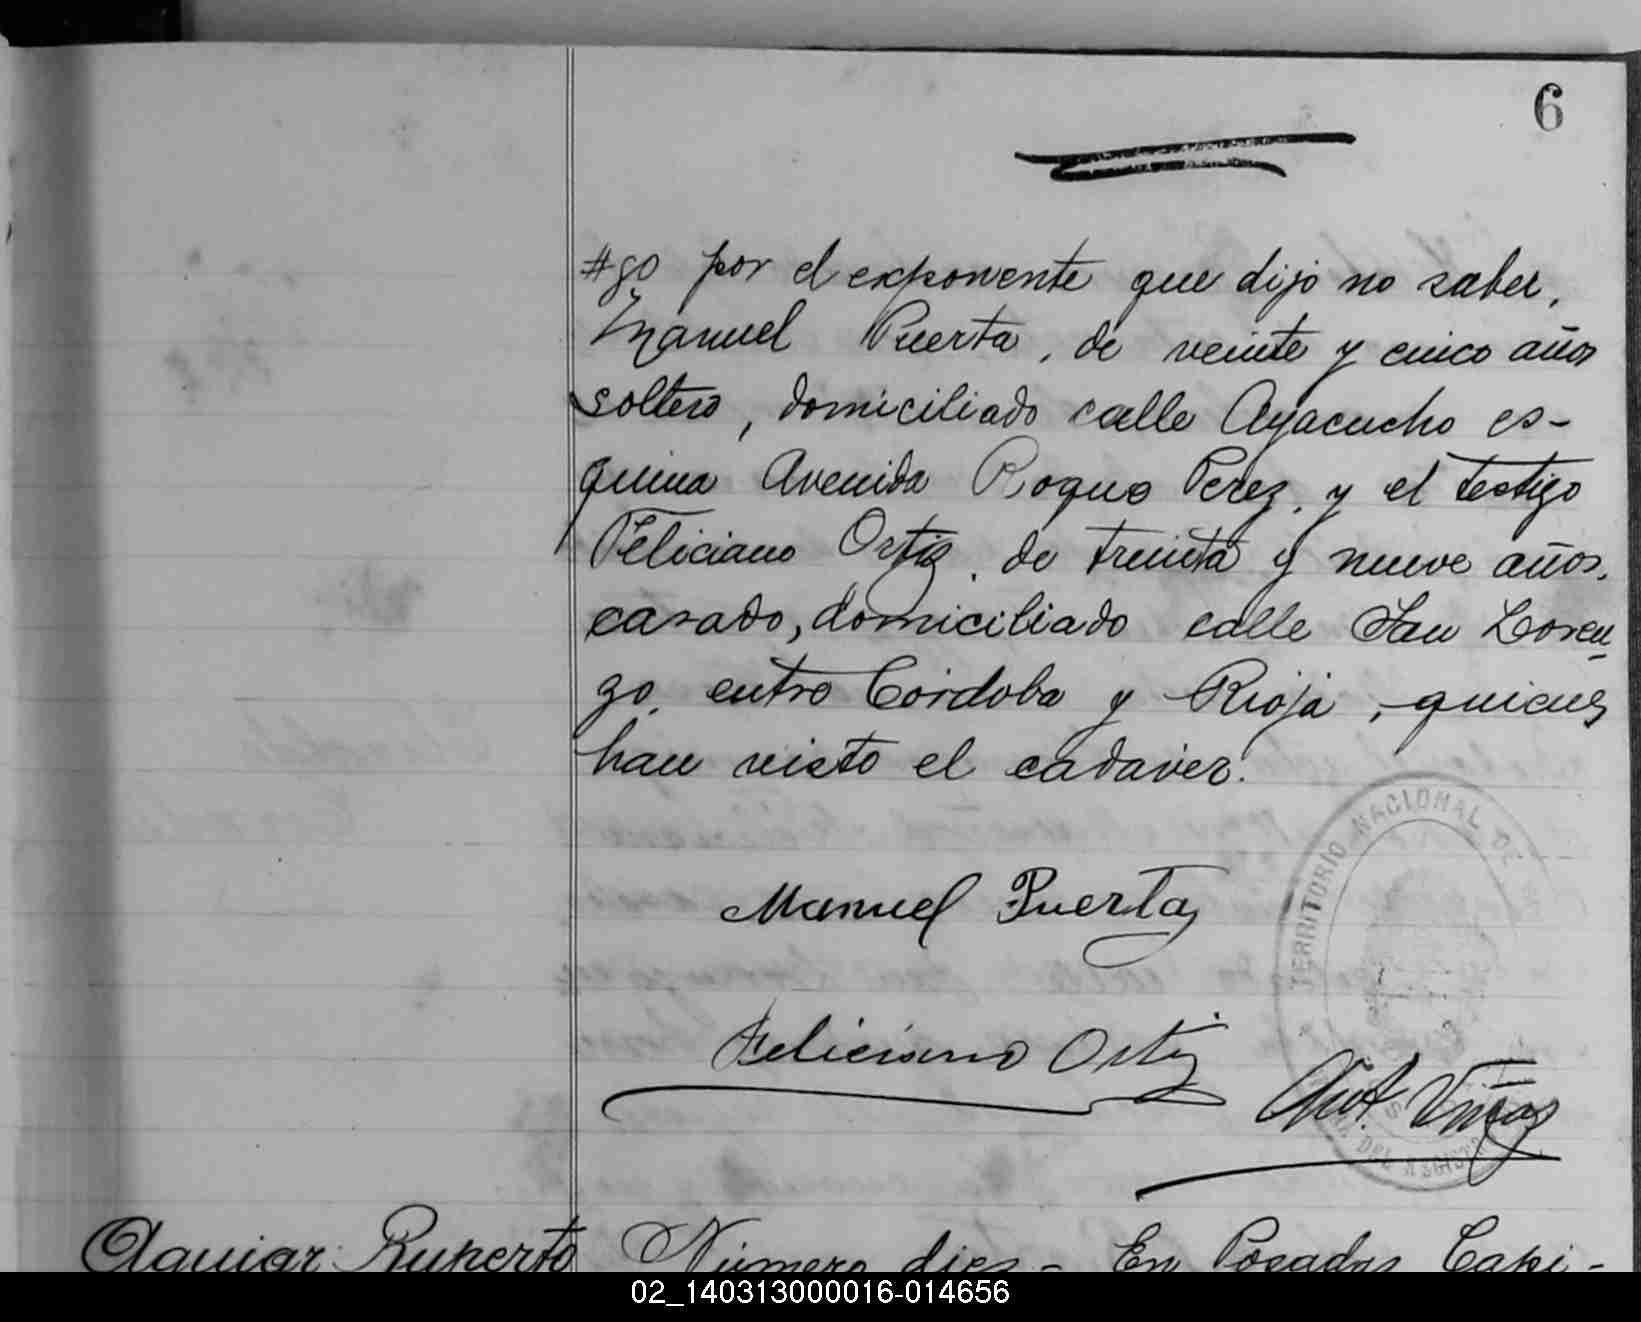 6
#go por el exponente que dijo no saber,
Manuel Puerta, de veinte y cinco años
soltero, domiciliado calle Ayacucho es-
quina Avenida Roque Perez, y el testigo
Feliciano Ortiz, de treinta y nueve años,
casado, domiciliado calle San Loren-
zo, entre Córdoba y Rioja, quienes
han visto el cadaver.
TERRITORIO NACIONAL DE
Manuel Puerta
Feliciano Ortiz
Ant. Viñas
DEL REGISTRO
Aguiar Ruperto
Número diez - En Posadas Capi-
02_140313000016-014656